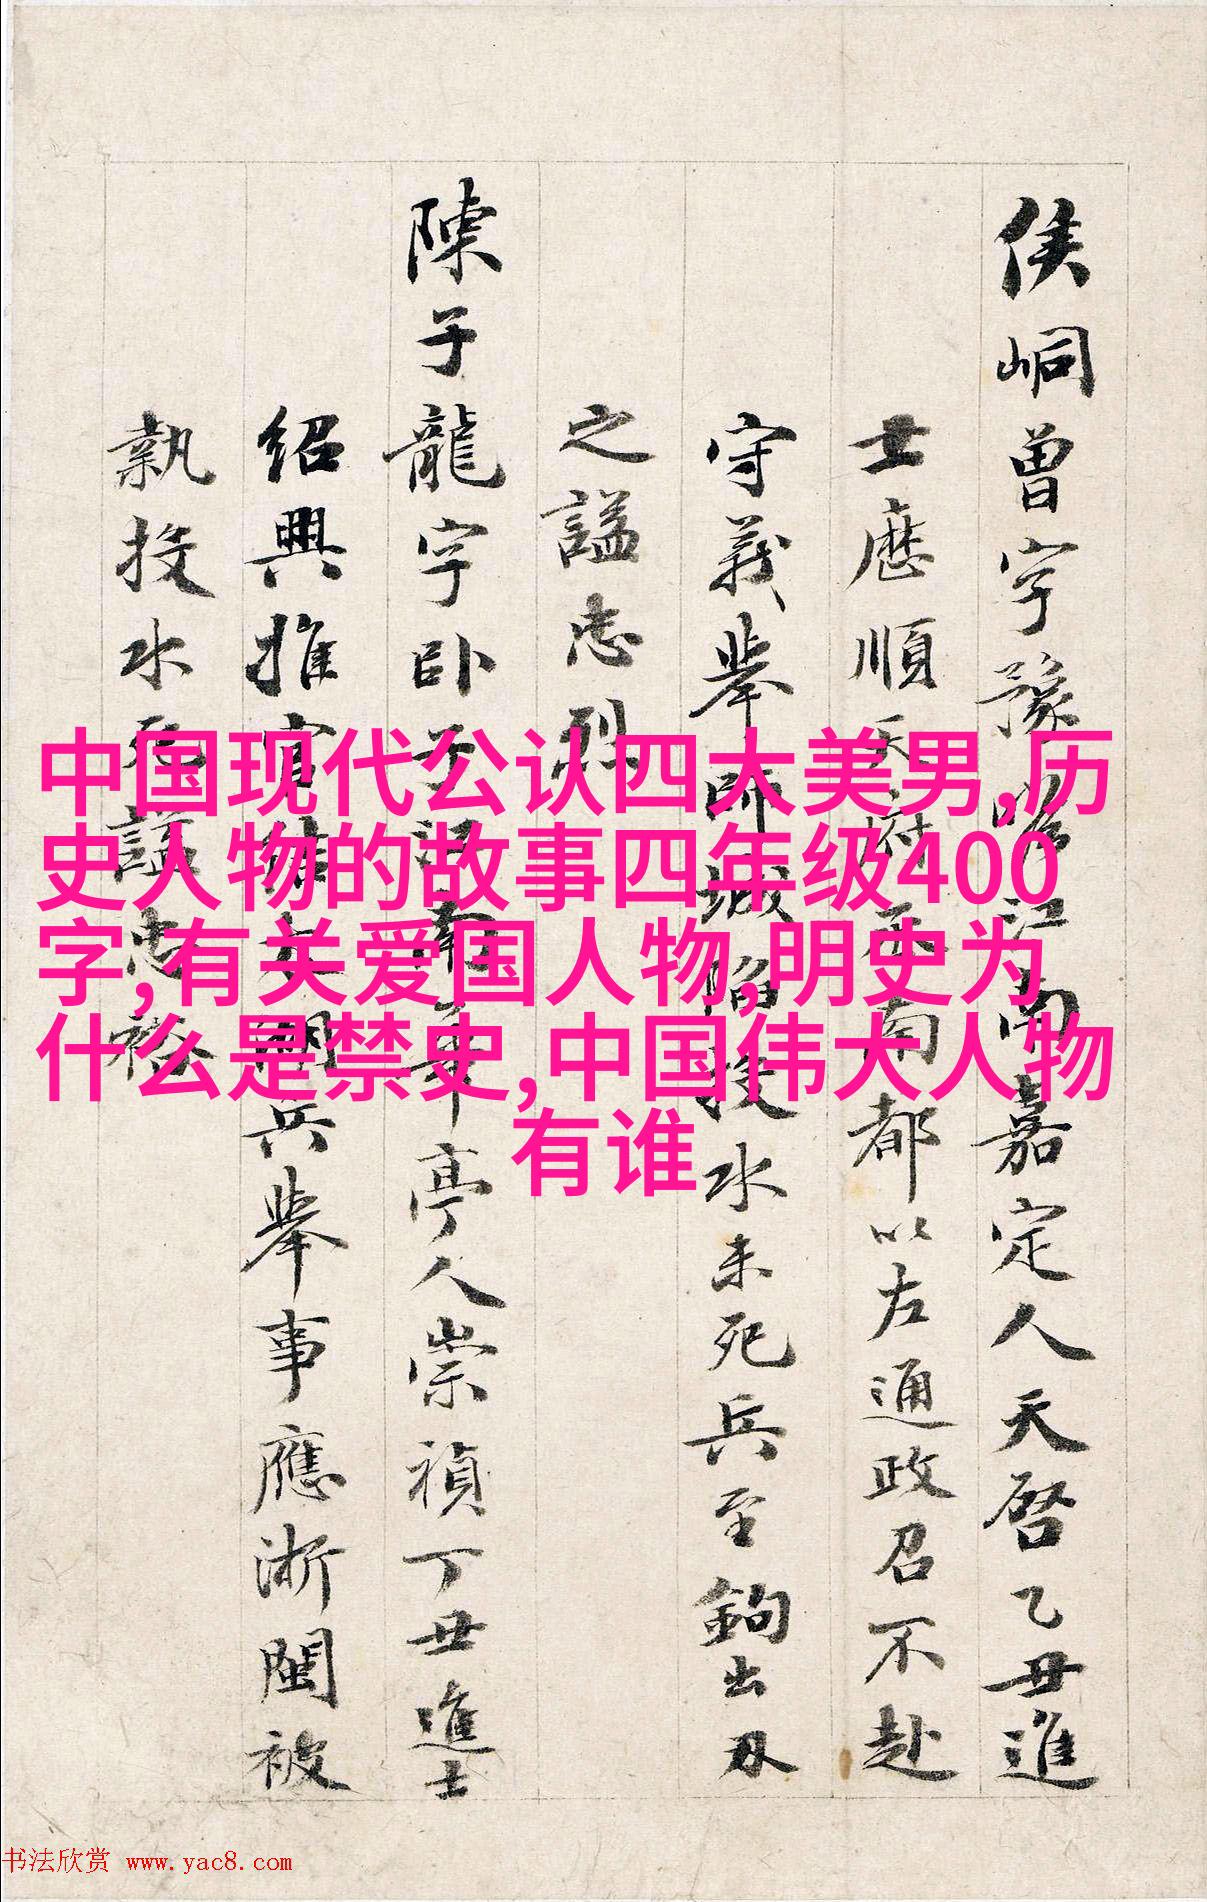 侯峒曾字豫瞻江南嘉定人天啓乙丑進
士歷順天府丞南都以左通政召不赴
守義舉師城陷投水未死兵至鉤出刃
之謚忠烈
陳子龍字卧子江南華亭人崇禎丁丑進士
紹興推官 兵舉事應浙閩被
執投水死謚忠裕
中国现代公认四大美男,历
史人物的故事四年级400
字,有关爱国人物,明史为
什么是禁史,中国伟大人物
有谁
书法欣赏 www.yac8.com